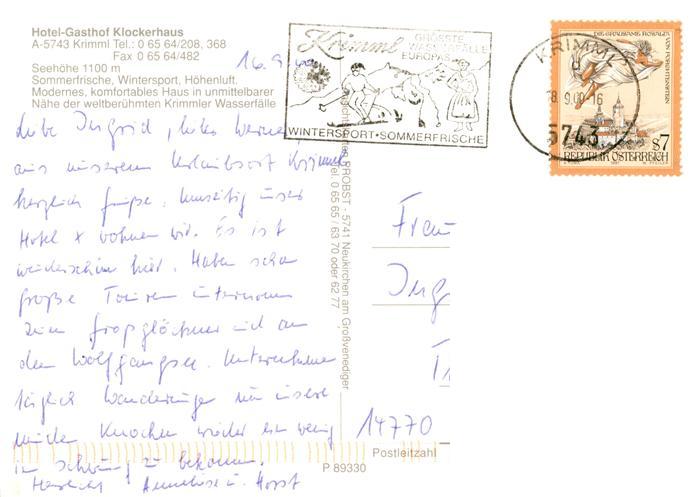 Hotel-Gasthof Klockerhaus
A-5743 Krimml Tel.: 0 65 64/208, 368
Fax 0 65 64/482
Seehöhe 1100 m
Sommerfrische, Wintersport, Höhenluft.
Modernes, komfortables Haus in unmittelbarer
Nähe der weltberühmten Krimmler Wasserfälle
16.9.
Krimml GRÖSSTE
WASSERFÄLLE
EUROPAS
WINTERSPORT•SOMMERFRISCHE
KRIMML
18.9.00-16
5743
DIE GRAUSAME ROSALIA
VON FORCHTENSTEIN
S7
REPUBLIK ÖSTERREICH
Liebe Ingrid, lieber Werner
aus unserem Urlaubsort Krimml
herzliche Grüße. Umseitig unser
Hotel x wohnen wir. Es ist
wunderschön hier. Haben schon
große Touren unternommen
zum Großglockner und an
den Wolfgangsee. Unternehmen
täglich Wanderungen um unsere
müden Knochen wieder ein wenig
in Schwung zu bekommen.
Herzlichst Anneliese u. Horst
PROBST - 5741 Neukirchen am Großvenediger
Tel. 0 65 65 / 63 70 oder 62 77
Frau
Ingr
14770
Postleitzahl
P 89330